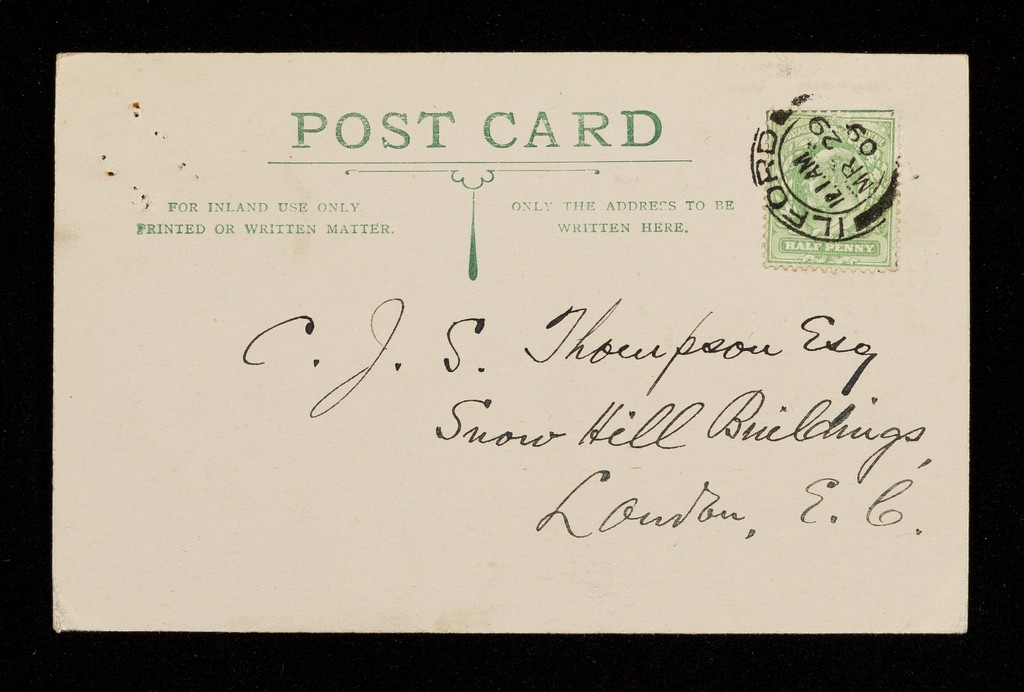 POST CARD
FOR INLAND USE ONLY
PRINTED OR WRITTEN MATTER.
ONLY THE ADDRESS TO BE
WRITTEN HERE.
ILFORD
12 1AM
MR 29
09
HALF PENNY
C. J. S. Thompson Esq
Snow Hill Buildings,
London, E. C.